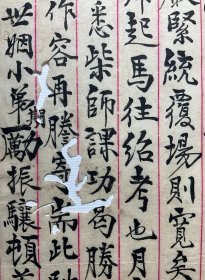 緊統覆場則寬矣
起馬往紹考也月
悉柴師課功曷勝
作容再謄寄奈此
世姻小弟期勵振驥頓首